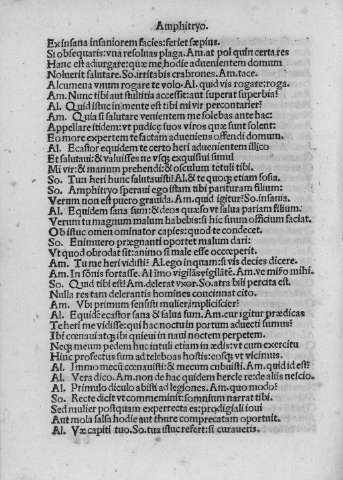 Amphitryo.
Ex insana insaniorem facies: feriet sæpius.
Si obsequaris: vna resoluas plaga. Am. at pol quin certa res
Hanc est adiurgare: quæ me hodie aduenientem domum
Noluerit salutare. So. irritabis crabrones. Am. tace.
Alcumena vnum rogare te volo. Al. quid vis rogare: roga.
Am. Nunc tibi aut stultitia accessit: aut superat superbia?
Al. Quid istuc in mente est tibi mi vir percontarier?
Am. Quia si salutare venientem me solebas ante hac:
Appellare itidem: vt pudicę suos viros quæ sunt solent:
Eo more expertem te factam adueniens offendi domum.
Al. Ecastor equidem te certo heri aduenientem illico
Et salutaui: & valuisses ne vsq; exquisiui simul
Mi vir: & manum prehendi: & osculum tetuli tibi.
So. Tun heri hunc salutauisti? Al. & te quoq; etiam sosia.
So. Amphitryo speraui ego istam tibi parituram filium:
Verum non est puero grauida. Am. quid igitur? So. insania.
Al. Equidem sana sum: & deos quæso vt salua pariam filium.
Verum tu magnum malum habebis: si hic suum officium faciat.
Ob istuc omen ominator capies: quod te condecet.
So. Enimuero prægnanti oportet malum dari:
Vt quod obrodat sit: animo si male esse occœperit.
Am. Tu me heri vidisti? Al. ego inquam: si vis decies dicere.
Am. In sōnis fortasse. Al. īmo vigilās vigilātē. Am. vę misero mihi.
So. Quid tibi est? Am. delerat vxor. So. atra bili percita est.
Nulla res tam delerantis homines concinnat cito.
Am. Vbi primum sensisti mulier impliciscier?
Al. Equidē ecastor sana & salua sum. Am. cur igitur prædicas
Te heri me vidisse: qui hac noctu in portum aduecti sumus?
Ibi cœnaui atq; ibi quieui in naui noctem perpetem.
Neq; meum pedem huc intuli etiam in ædis: vt cum exercitu
Hinc profectus sum ad teleboas hostis: eosq; vt vicimus.
Al. Immo mecū cœnauisti: & mecum cubuisti. Am. quid id est?
Al. Vera dico. Am. non de hac quidem hercle re: de aliis nescio.
Al. Primulo diculo abisti ad legiones. Am. quo modo?
So. Recte dicit vt commeminit: somnium narrat tibi.
Sed mulier postquam experrecta es: prodigiali ioui
Aut mola salsa hodie aut thure comprecatam oportuit.
Al. Væ capiti tuo. So. tua istuc refert: si curaueris.